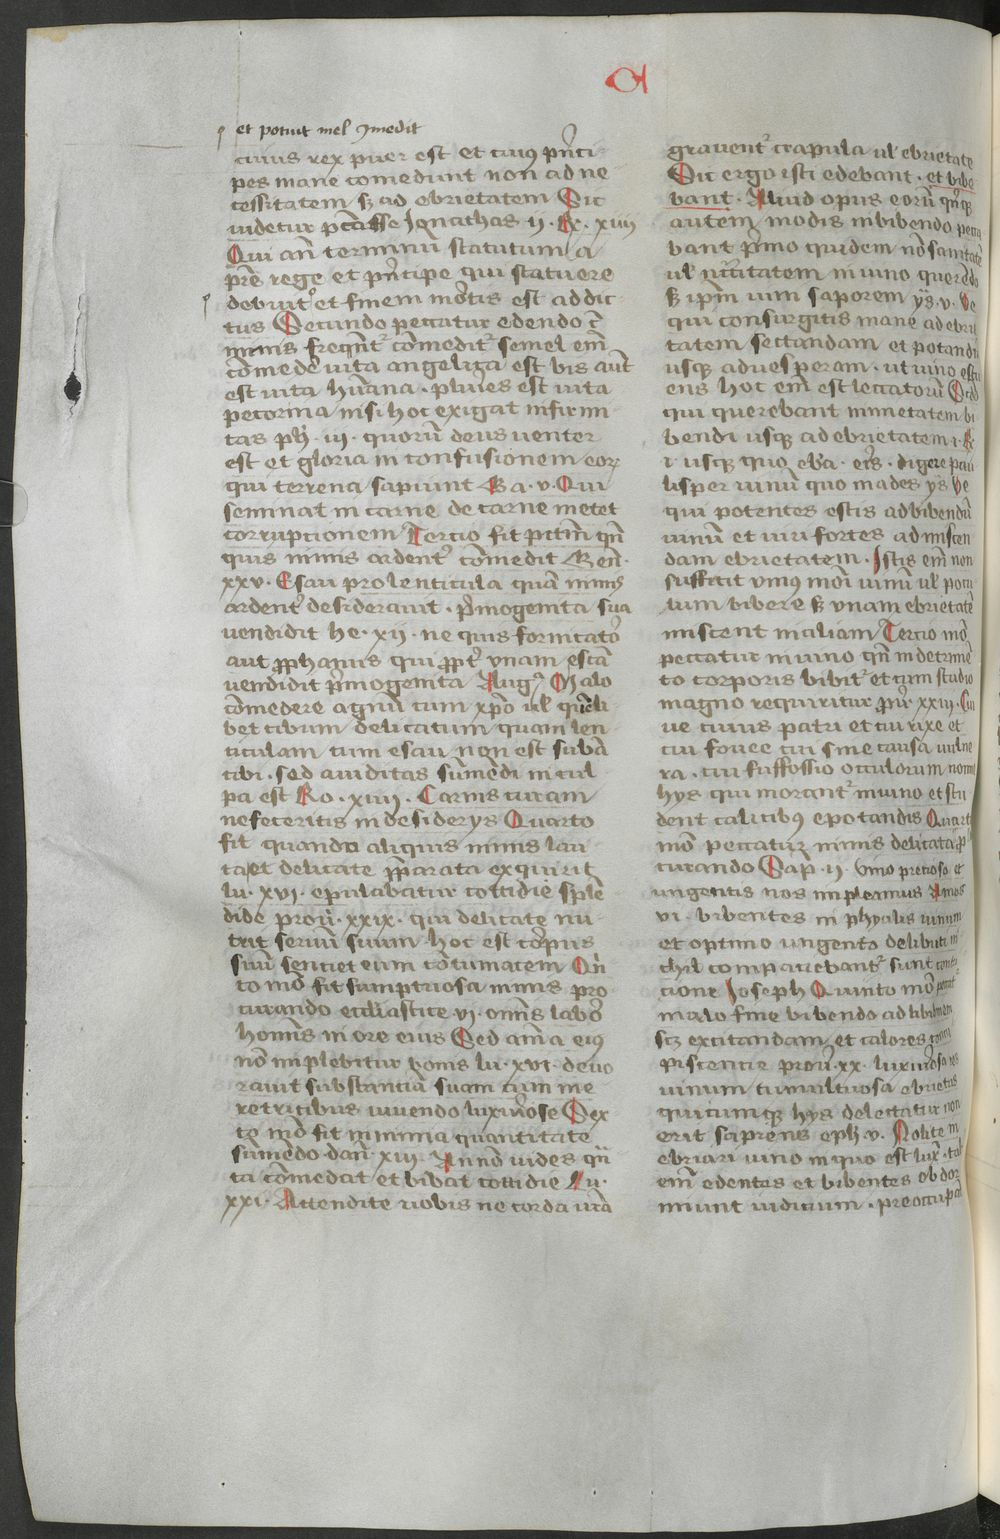 A
et potuit mel ꝯmedit
cuius rex puer est et cuiꝰ pͥnci
pes mane comedunt non ad ne
cessitatem sꝫ ad ebrietatem Sic
videtur pctāsse Jonathas ii· R· xiiii
Qui an̄ terminū statutum a
pr̄e rege et pͥncipe qui statuere
debuit et finem mortis est addic
tus Secundo peccatur edendo cū
nimis freqn̄tr̄ cōmeditr̄ semel em̄
cōmedē vita angelica est bis aūt
est vita hūana · plures est vita
pecorina nisi hoc exigat infirmi
tas ph̄· iii· quorū deus venter
est et gloria in confusionem eoꝝ
qui terrena sapiunt Ga· v· Qui
seminat in carne de carne metet
corruptionem Tercio fit pctm̄ qn̄
quis nimis ardentr̄ cōmedit Gen̄·
xxv· Esau pro lenticula quā nimis
ardentr̄ desideravit · pͥmogenita sua
vendidit he· xij· ne quis fornicator̄
aut ꝓphanus qui ꝓptr̄ vnam escā
vendidit pͥmogenita Augꝰ Malo
cōmedere agnū cum xp̄o vl quēli
bet cibum delicatum quam len
ticulam cum esau non est subā
cibi · sed auiditas sūmēdi in cul
pa est Ro· xiiii· Carnis curam
ne feceritis in desiderys Quarto
fit quando aliquis nimis lau
ta et delicate p̄parata exquirit
lu· xvi· epulabatur cottidie splē
dide prou̅· xxix· qui delicate nu
trit seruū suum hoc est corpus
suū sentiet eum cōtumacem Qn̄
to mō fit sumptuosa nimis pro
curando eccl̄iastice vi· omīs labor
homīs in ore eius Sed am̄a eiꝰ
nō implebitur bonis lu· xvi· devo
rauit substantiā suam cum me
retricibus viuendo luxuriose Sex
to mō fit in nimia quantitate
sūmēdo· dan̄· xiii· An nō vides qn̄
ta cōmedat et bibat cottidie Lu·
xxi· Attendite vobis ne corda vr̄a
grauentr̄ crapula vl ebrietate
Sic ergo isti edebant · et bibe
bant · Aliud opus eorū qn̄qꝫ
autem modis in bibendo pecca
bant pͥmo quidem nō sanitatē
vl ncc̄itatem in vino querēdo
sꝫ ipm̄ vini saporem ys̄· v· Ve
qui consurgitis mane ad ebrie
tatem sectandam et potandū
usqꝫ ad vesperam · ut vino estu
etis hoc em̄ est leccatorū Secūdo
qui querebant immetatem bi
bendi usqꝫ ad ebrietatem · i· R
i· usqꝫ quo eb̄a · eris · digere pau
lisper vinū quo mades ys̄ Ve
qui potentes estis ad bibendū
vinū et viri fortes ad miscen
dam ebrietatem · Istis em̄ non
sufficit vniꝰ modi vinū vl pocu
lum bibere sꝫ vnam ebrietatē
miscent in aliam Tercio mō
peccatur in vino qn̄ in detrimē
to corporis bibitr̄ et cum studio
magno requiritur ꝓuͬ xxiii· Cui
ve cuius patri et cui rixe et
cui fouee cui sine causa vulne
ra · cui suffossio occulorum nonne
hys qui morantr̄ in vino et stu
dent calicibꝰ epotandis Quarto
mō peccatur nimis delicata ꝓ
curando Sap̄· ii· vino precioso et
ungentis nos impleamus Amos
vi· bibentes in phyalis vinum
et optimo ungento delibuti ni
chil compaciebantr̄ sunt contri
cione Joseph Quinto mō peccatr̄
malo fine bibendo ad libidinem
scꝫ excitandam et calores concu
piscentie prou̅· xx· luxuriosa res
vinum tumultuosa ebrietas
quicumqꝫ hys delectatur non
erit sapiens eph̄· v· Nolite in
ebriari vino in quo est lux̄· tales
em̄ edentes et bibentes ob dor
miunt iudicium · preoccupat